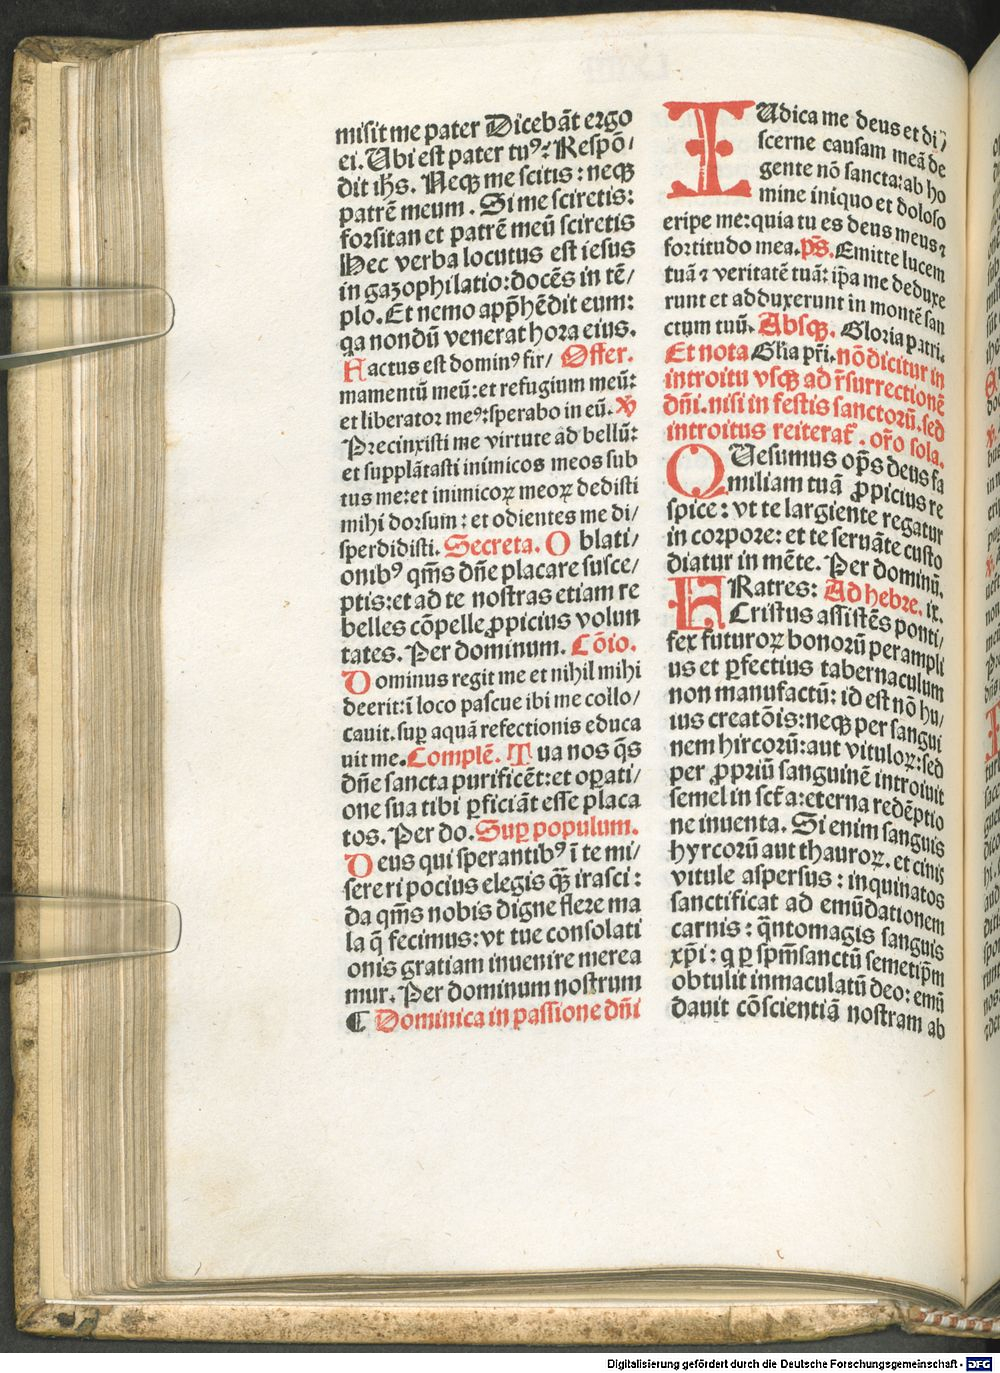 misit me pater Dicebāt ergo
ei. Ubi est pater tuꝰ? Respō/
dit ihs. Neqꝫ me scitis: neqꝫ
patrē meum. Si me sciretis:
forsitan et patrē meū sciretis
Hec verba locutus est iesus
in gazophilatio: docēs in tē/
plo. Et nemo appr̄hēdit eum:
qa nondū venerat hora eius.
Factus est dominꝰ fir/ Offer.
mamentū meū: et refugium meū:
et liberator meꝰ: sperabo in eū. ℣
Precinxisti me virtute ad bellū:
et supplātasti inimicos meos sub
tus me: et inimicoꝝ meoꝝ dedisti
mihi dorsum: et odientes me di/
sperdidisti. Secreta. Oblati/
onibꝰ qm̄s dn̄e placare susce/
ptis: et ad te nostras etiam re
belles cōpelle ꝓpicius volun
tates. Per dominum. Cōio.
Dominus regit me et nihil mihi
deerit: ī loco pascue ibi me collo/
cauit. suꝑ aquā refectionis educa
uit me. Complē. Tua nos q̄s
dn̄e sancta purificēt: et oꝑati/
one sua tibi ꝑficiāt esse placa
tos. Per do. Suꝑ populum.
Deus qui sperantibꝰ ī te mi/
sereri pocius elegis qꝫ̄ irasci:
da qm̄s nobis digne flere ma
la q̄ fecimus: vt tue consolati
onis gratiam inuenire merea
mur. Per dominum nostrum
¶ Dominica in passione dn̄i
IUdica me deus et di/
scerne causam meā de
gente nō sancta: ab ho
mine iniquo et doloso
eripe me: quia tu es deus meus ⁊
fortitudo mea. ps̄. Emitte lucem
tuā ⁊ veritatē tuā: ip̄a me deduxe
runt et adduxerunt in montē san
ctum tuū. Absqꝫ. Gloria patri.
Et nota Gl̄ia pr̄i. nō dicitur in
introitu vsqꝫ ad r̄surrectionē
dn̄i. nisi in festis sanctorū. sed
introitus reiterat̄. or̄o sola.
QUesumus op̄s deus fa
miliam tuā ꝓpicius re
spice: vt te largiente regatur
in corpore: et te seruāte custo
diatur in mēte. Per dominū.
FRatres: Ad hebre. ix.
Cristus assistēs ponti/
fex futuroꝝ bonorū per ampli
us et ꝑfectius tabernaculum
non manufactū: id est nō hu/
ius creatōis: neqꝫ per sangui
nem hircorū: aut vituloꝝ: sed
per ꝓpriū sanguinē introiuit
semel in sct̄a: eterna redēptio
ne inuenta. Si enim sanguis
hyrcorū aut thauroꝝ. et cinis
vitule aspersus: inquinatos
sanctificat ad emūdationem
carnis: q̄ntomagis sanguis
xp̄i: q ꝑ spm̄ sanctū semetip̄m
obtulit inmaculatū deo: emū
dauit cōscientiā nostram ab
Digitalisierung gefördert durch die Deutsche Forschungsgemeinschaft - DFG